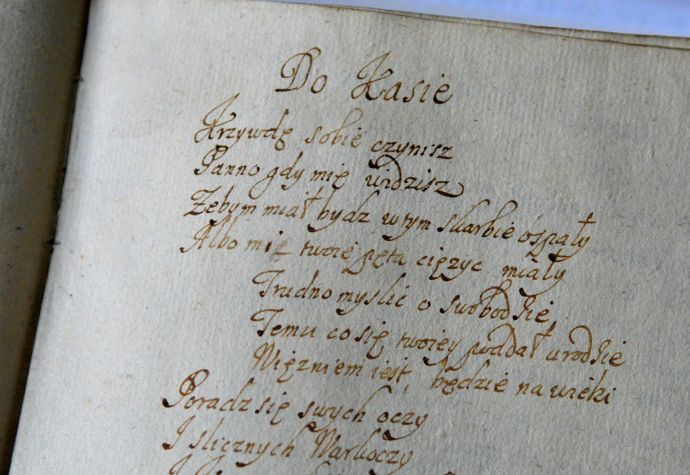 Do Kasie
Krzywdę sobie czynisz
Panno gdy mię widzisz
Zebym miał bydz w tym skarbie ospały
Albo mię twoie pęta ciężyc miały
Trudno myslić o swobodzie
Temu co się twoiey poddał urodzie
Więzniem iest, będzie na wieki
Poradz się swych oczy
I slicznych Warkoczy